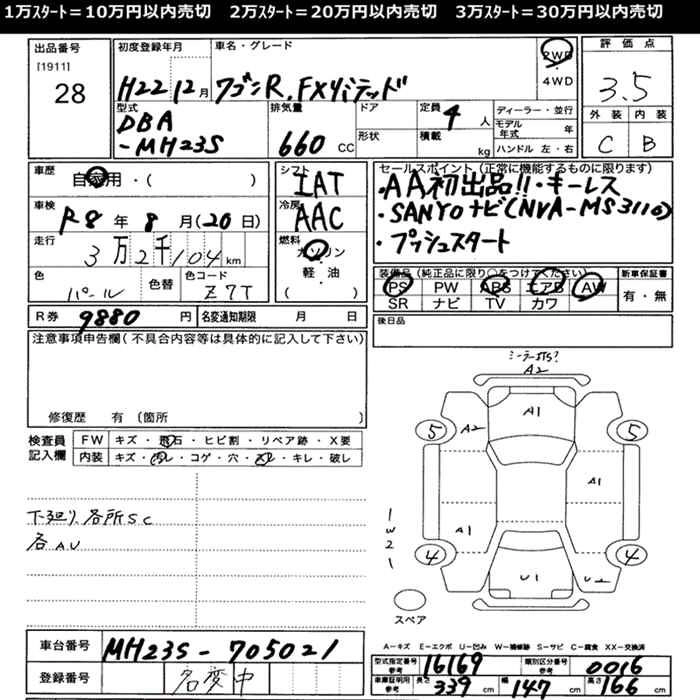 1万ｽﾀｰﾄ＝10万円以内売切　2万ｽﾀｰﾄ＝20万円以内売切　3万ｽﾀｰﾄ＝30万円以内売切
出品番号 初度登録年月 車名・グレード 評価点
[1911]
28 H22 12月 ワゴンR FXリミテッド 2WD 4WD 3.5
型式 排気量 ドア 定員 ディーラー・並行 外装 内装
DBA 4人 モデル年式 年
-MH23S 660cc 形状 積載 kg ハンドル 左・右 C B
車歴 自家用・( ) シフト セールスポイント(正常に機能するものに限ります)
IAT ・AA初出品!!・キーレス
車検 R8年8月(20日) 冷房 AAC ・SANYOナビ(NVA-MS3110)
走行 3万2千104km 燃料 ガソリン ・プッシュスタート
軽・油
色 色替 色コード ( ) 装備品(純正品に限り○をつけてください) 新車保証書
パール Z7T PS PW ABS エアB AW 有・無
SR ナビ TV カワ
R券 9880円 名変通知期限 月 日 後日品
注意事項申告欄(不具合内容等は具体的に記入して下さい)
修復歴 有 (箇所 )
検査員 FW キズ・飛石・ヒビ割・リペア跡・X要
記入欄 内装 キズ・・コゲ・穴・・キレ・破し
下廻り各所SC
各AU
A2
A1
5 A2 5
A1
A1
1W21
4 4
U1 U2
スペア
A-キズ E-エクボ U-凹み W-補修跡 S-サビ C-腐食 XX-交換済
車台番号 MH23S-705021
登録番号 名変中
型式指定番号 参考 16169 類別区分番号 参考 0016
車庫証明用 参考 長さ 339cm 幅 147cm 高さ 166cm